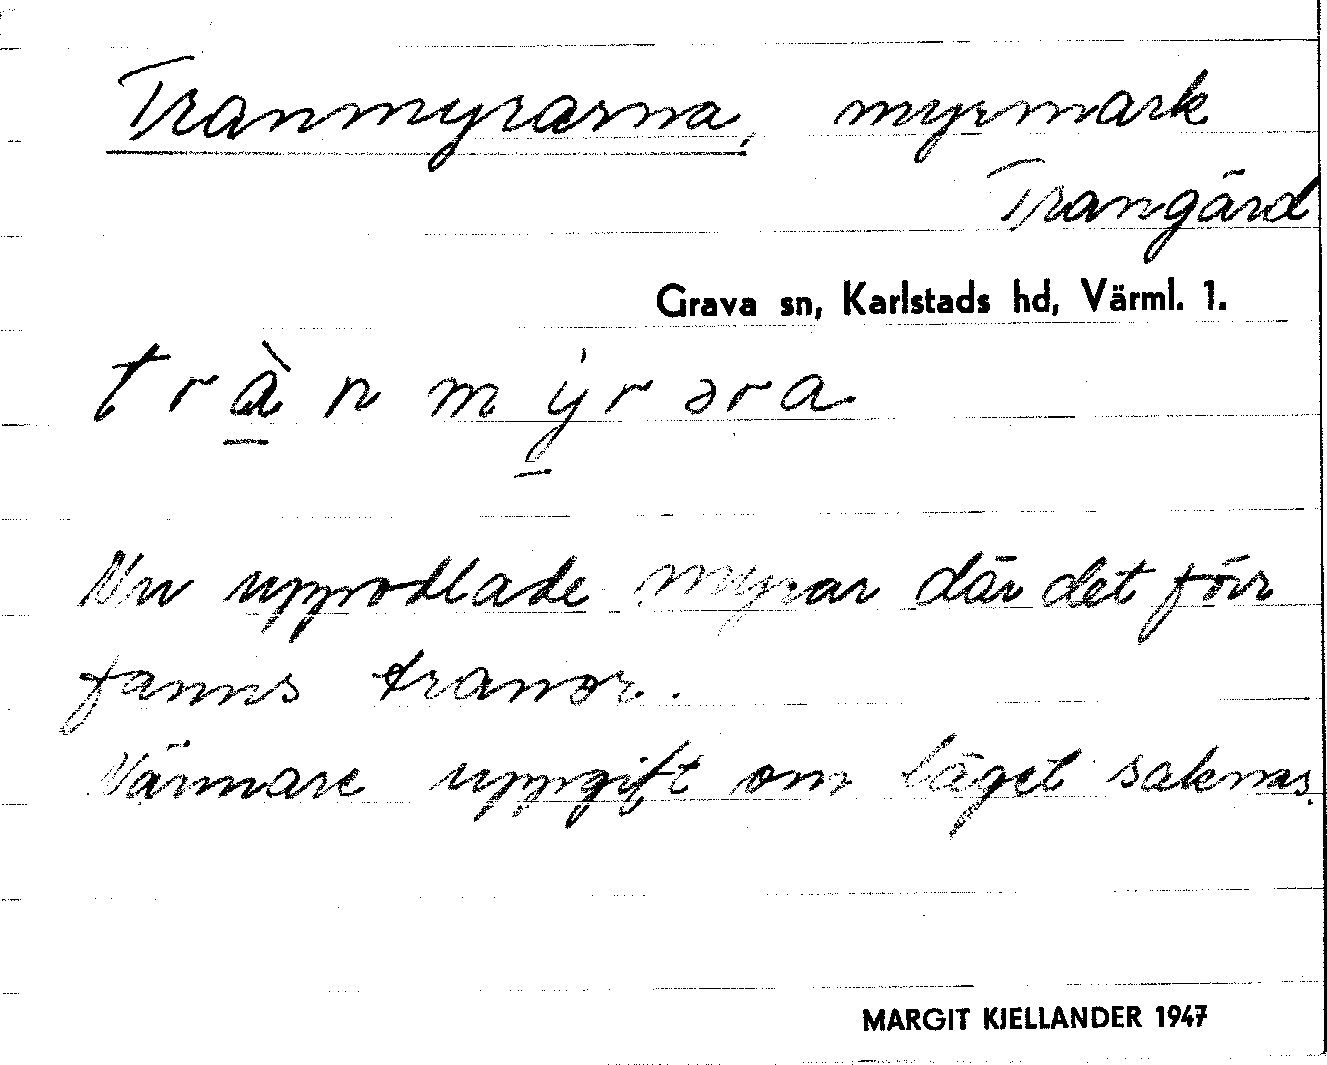 Tranmyrarna, myrmark
Trangärd
Grava sn, Karlstads hd, Värml. 1.
trànmy̍rəra
Nu uppodlade myrar där det förr
fanns tranor.
Närmare uppgift om läget saknas.
MARGIT KJELLANDER 1947